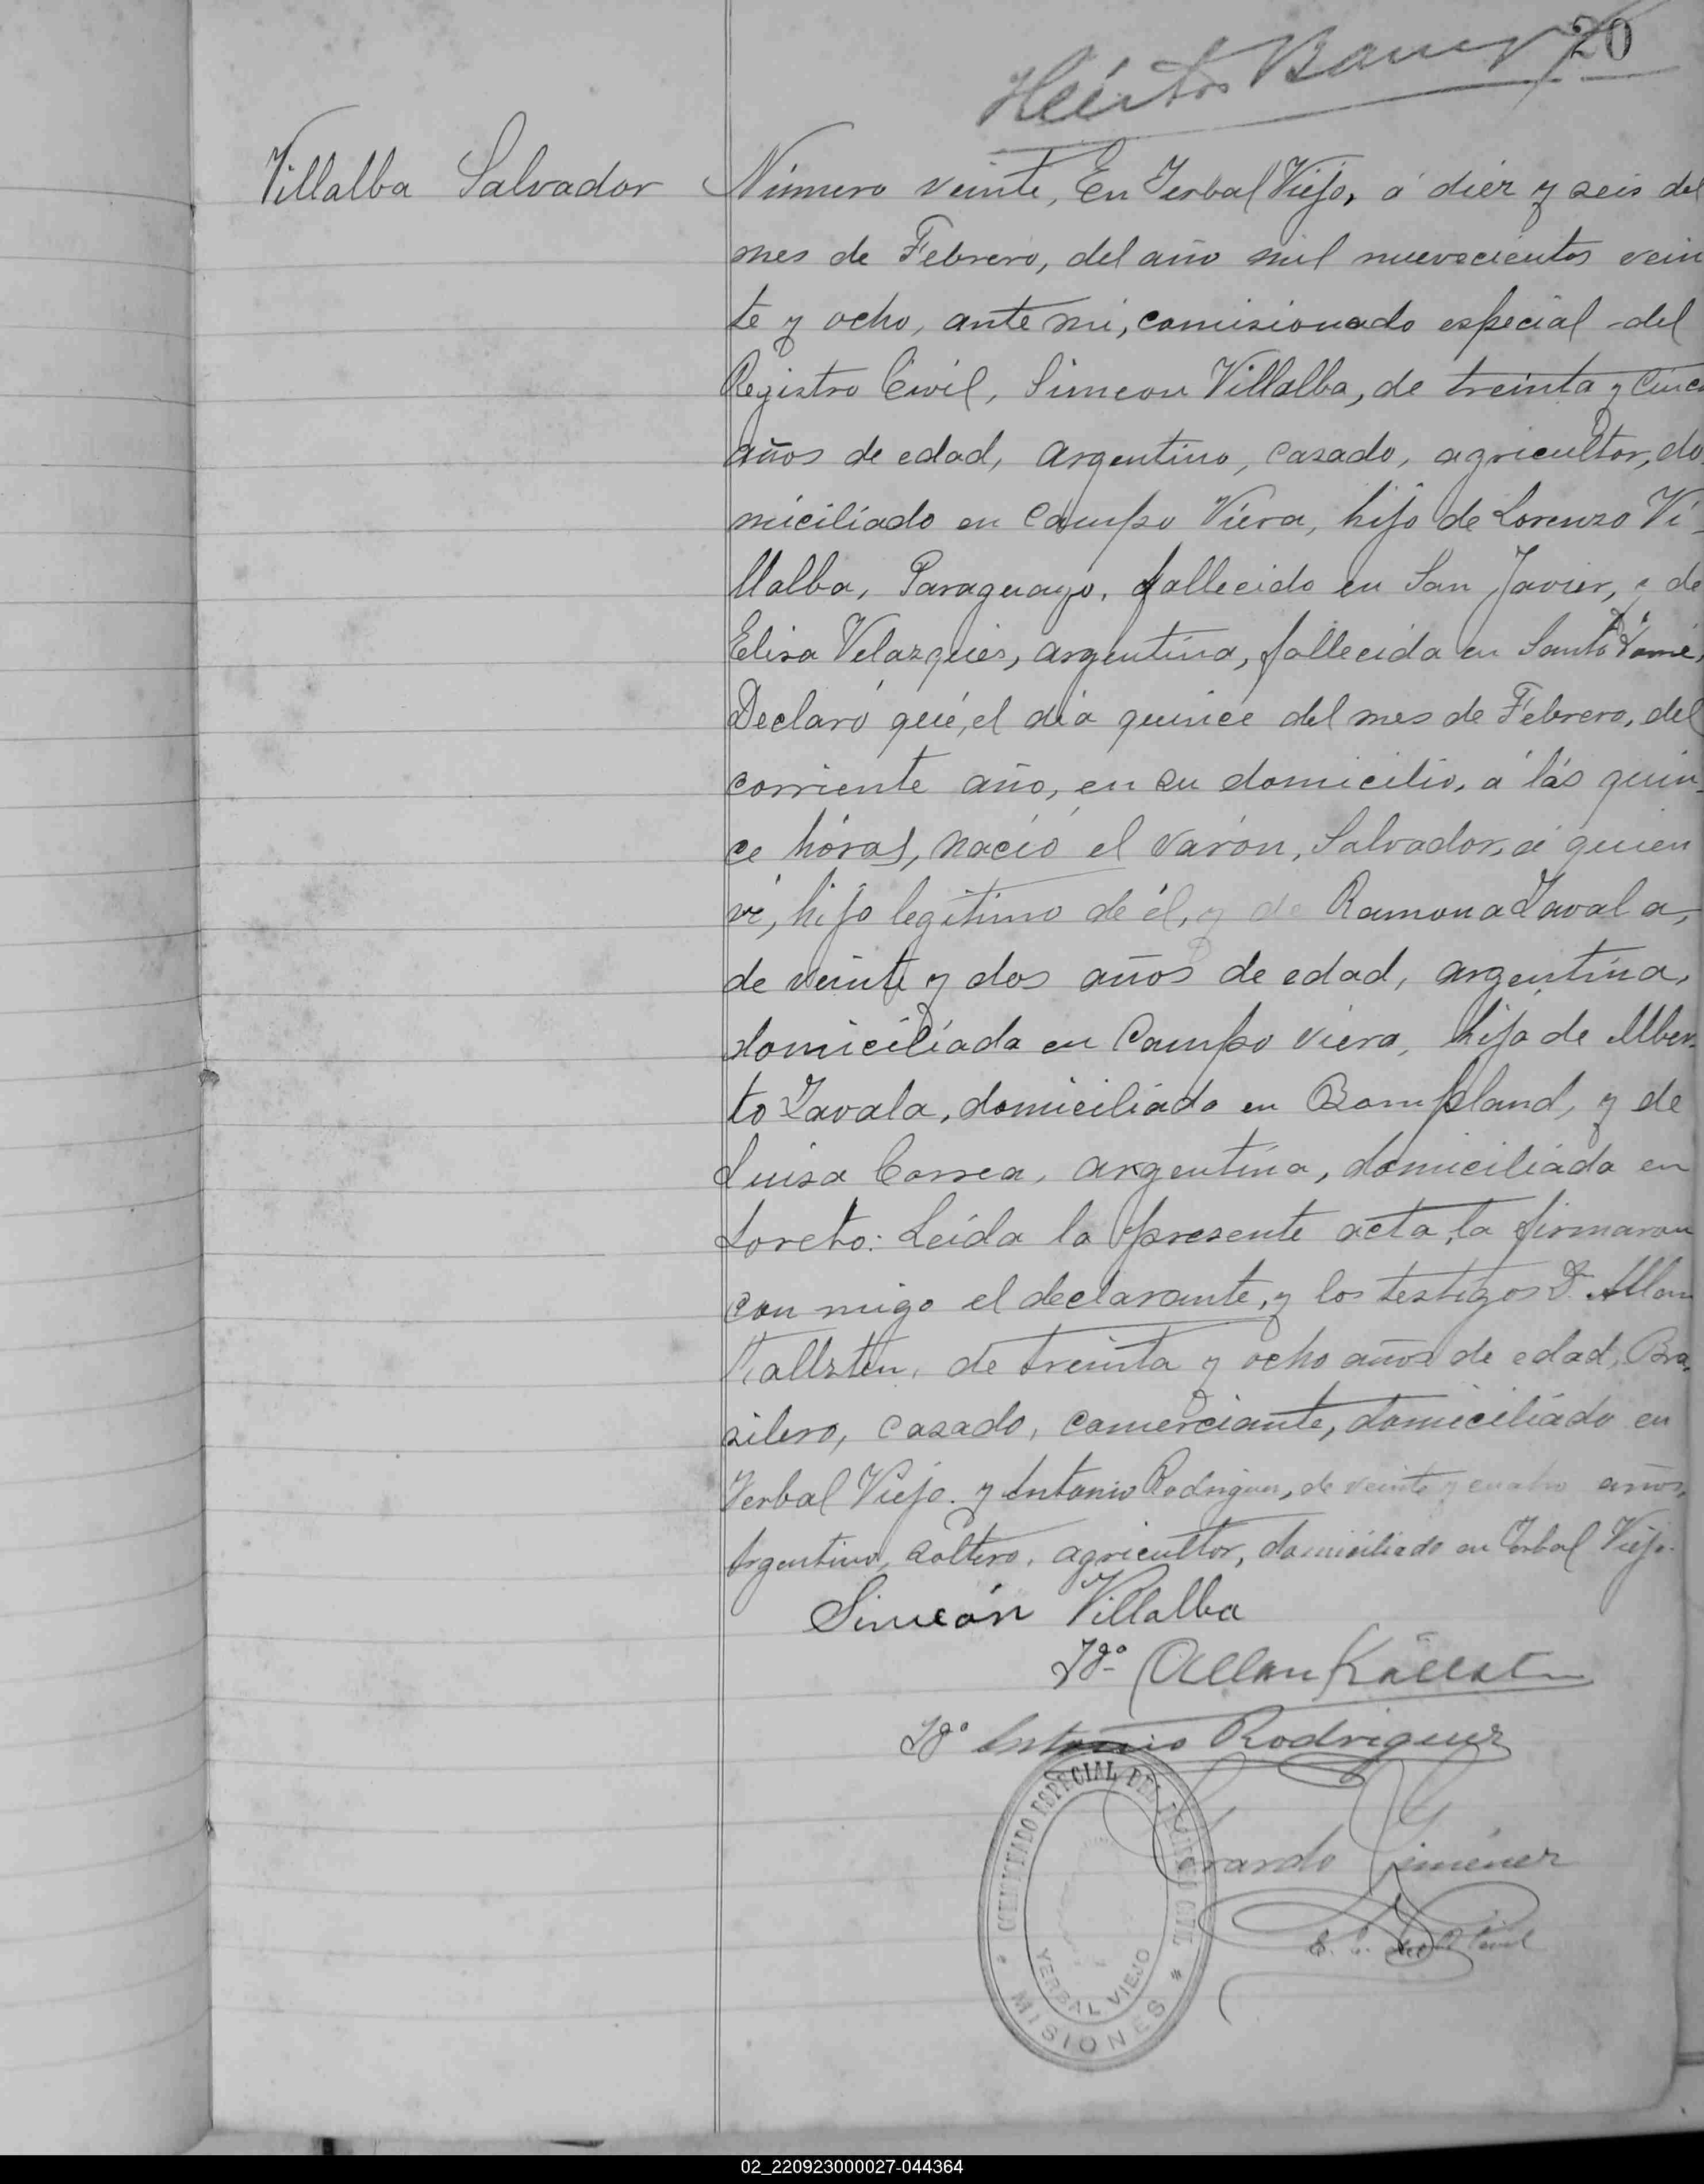 20
Villalba Salvador
Número veinte, En Yerbal Viejo, á diez y seis del
mes de Febrero, del año mil nuevecientos vein
te y ocho, ante mi, comisionado especial del
Registro Civil, Simeon Villalba, de treinta y cinco
años de edad, argentino, casado, agricultor, do
miciliado en Campo Viera, hijo de Lorenzo Vi-
llalba, Paraguayo, fallecido en San Javier, y de
Elisa Velazques, argentina, fallecida en Santo Tomé,
Declaró qué, el día quince del mes de Febrero, del
corriente año, en su domicilio, a lás quin-
ce hóras, nació el varón, Salvador, á quien
ví, hijo legítimo de él, y de Ramona Zavala,
de veinte y dos años de edad, argentina,
domiciliada en Campo viera, hija de Alber-
to Zavala, domiciliado en Bompland, y de
Luisa Correa, argentina, domiciliada en
Loreto: Leída la presente acta, la firmaron
con migo el declarante, y los testigos D. Allan
Kallsten, de treinta y ocho años de edad, Bra-
silero, casado, comerciante, domiciliado en
Yerbal Viejo. y Antonio Rodriguez, de veinte y cuatro años,
Argentino, soltero, agricultor, domiciliado en Yerbal Viejo.
Simeón Villalba
Tgo. Allan Källsten
Tgo Antonio Rodriguez
COMISIONADO ESPECIAL DEL REGISTRO CIVIL
YERBAL VIEJO
* MISIONES *
Gerardo Giménez
02_220923000027-044364